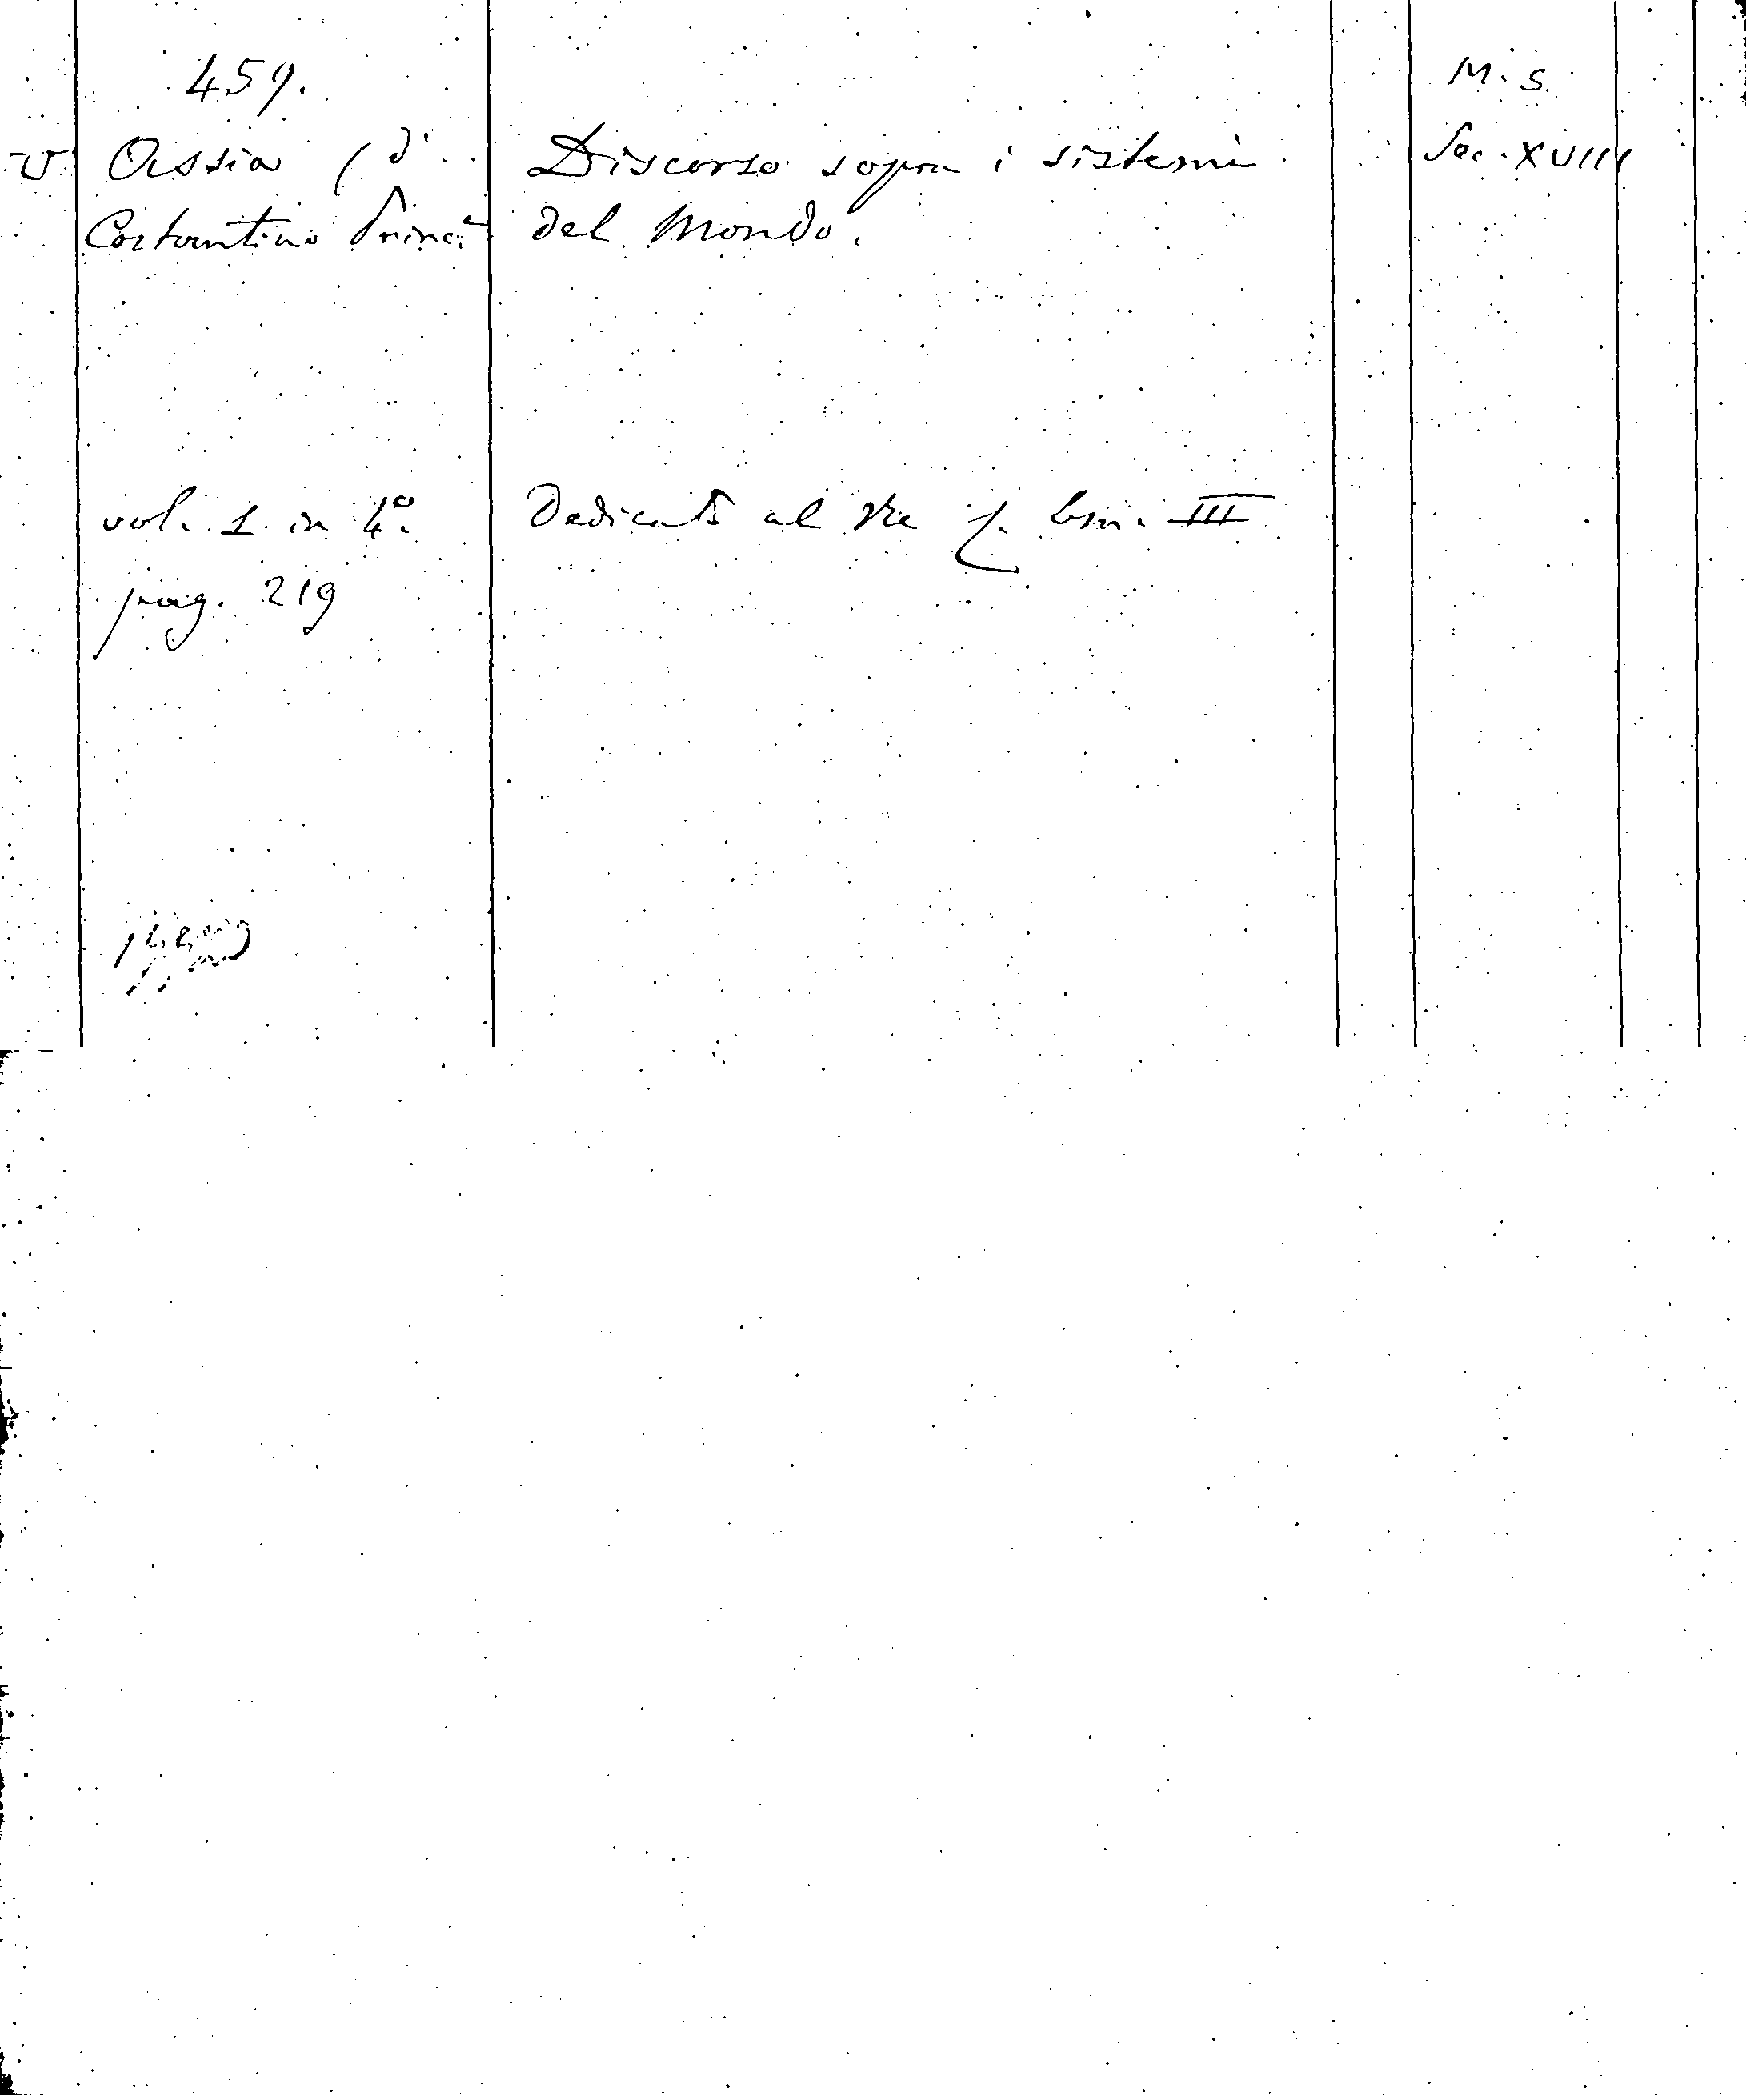 459.
M. S.
V Assia (d'
Discorso sopra i sistemi
Sec. XVIII
Costantino Princ.
del Mondo.
vol. 1 in 4º.
Dedicato al Re C. Em. III
pag. 219